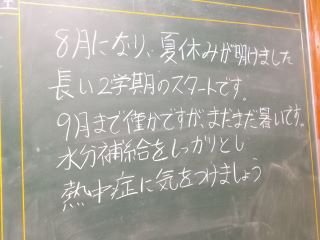 8月になり、夏休みが明けました
長い2学期のスタートです。
9月まで僅かですが、まだまだ暑いです。
水分補給をしっかりとし
熱中症に気をつけましょう